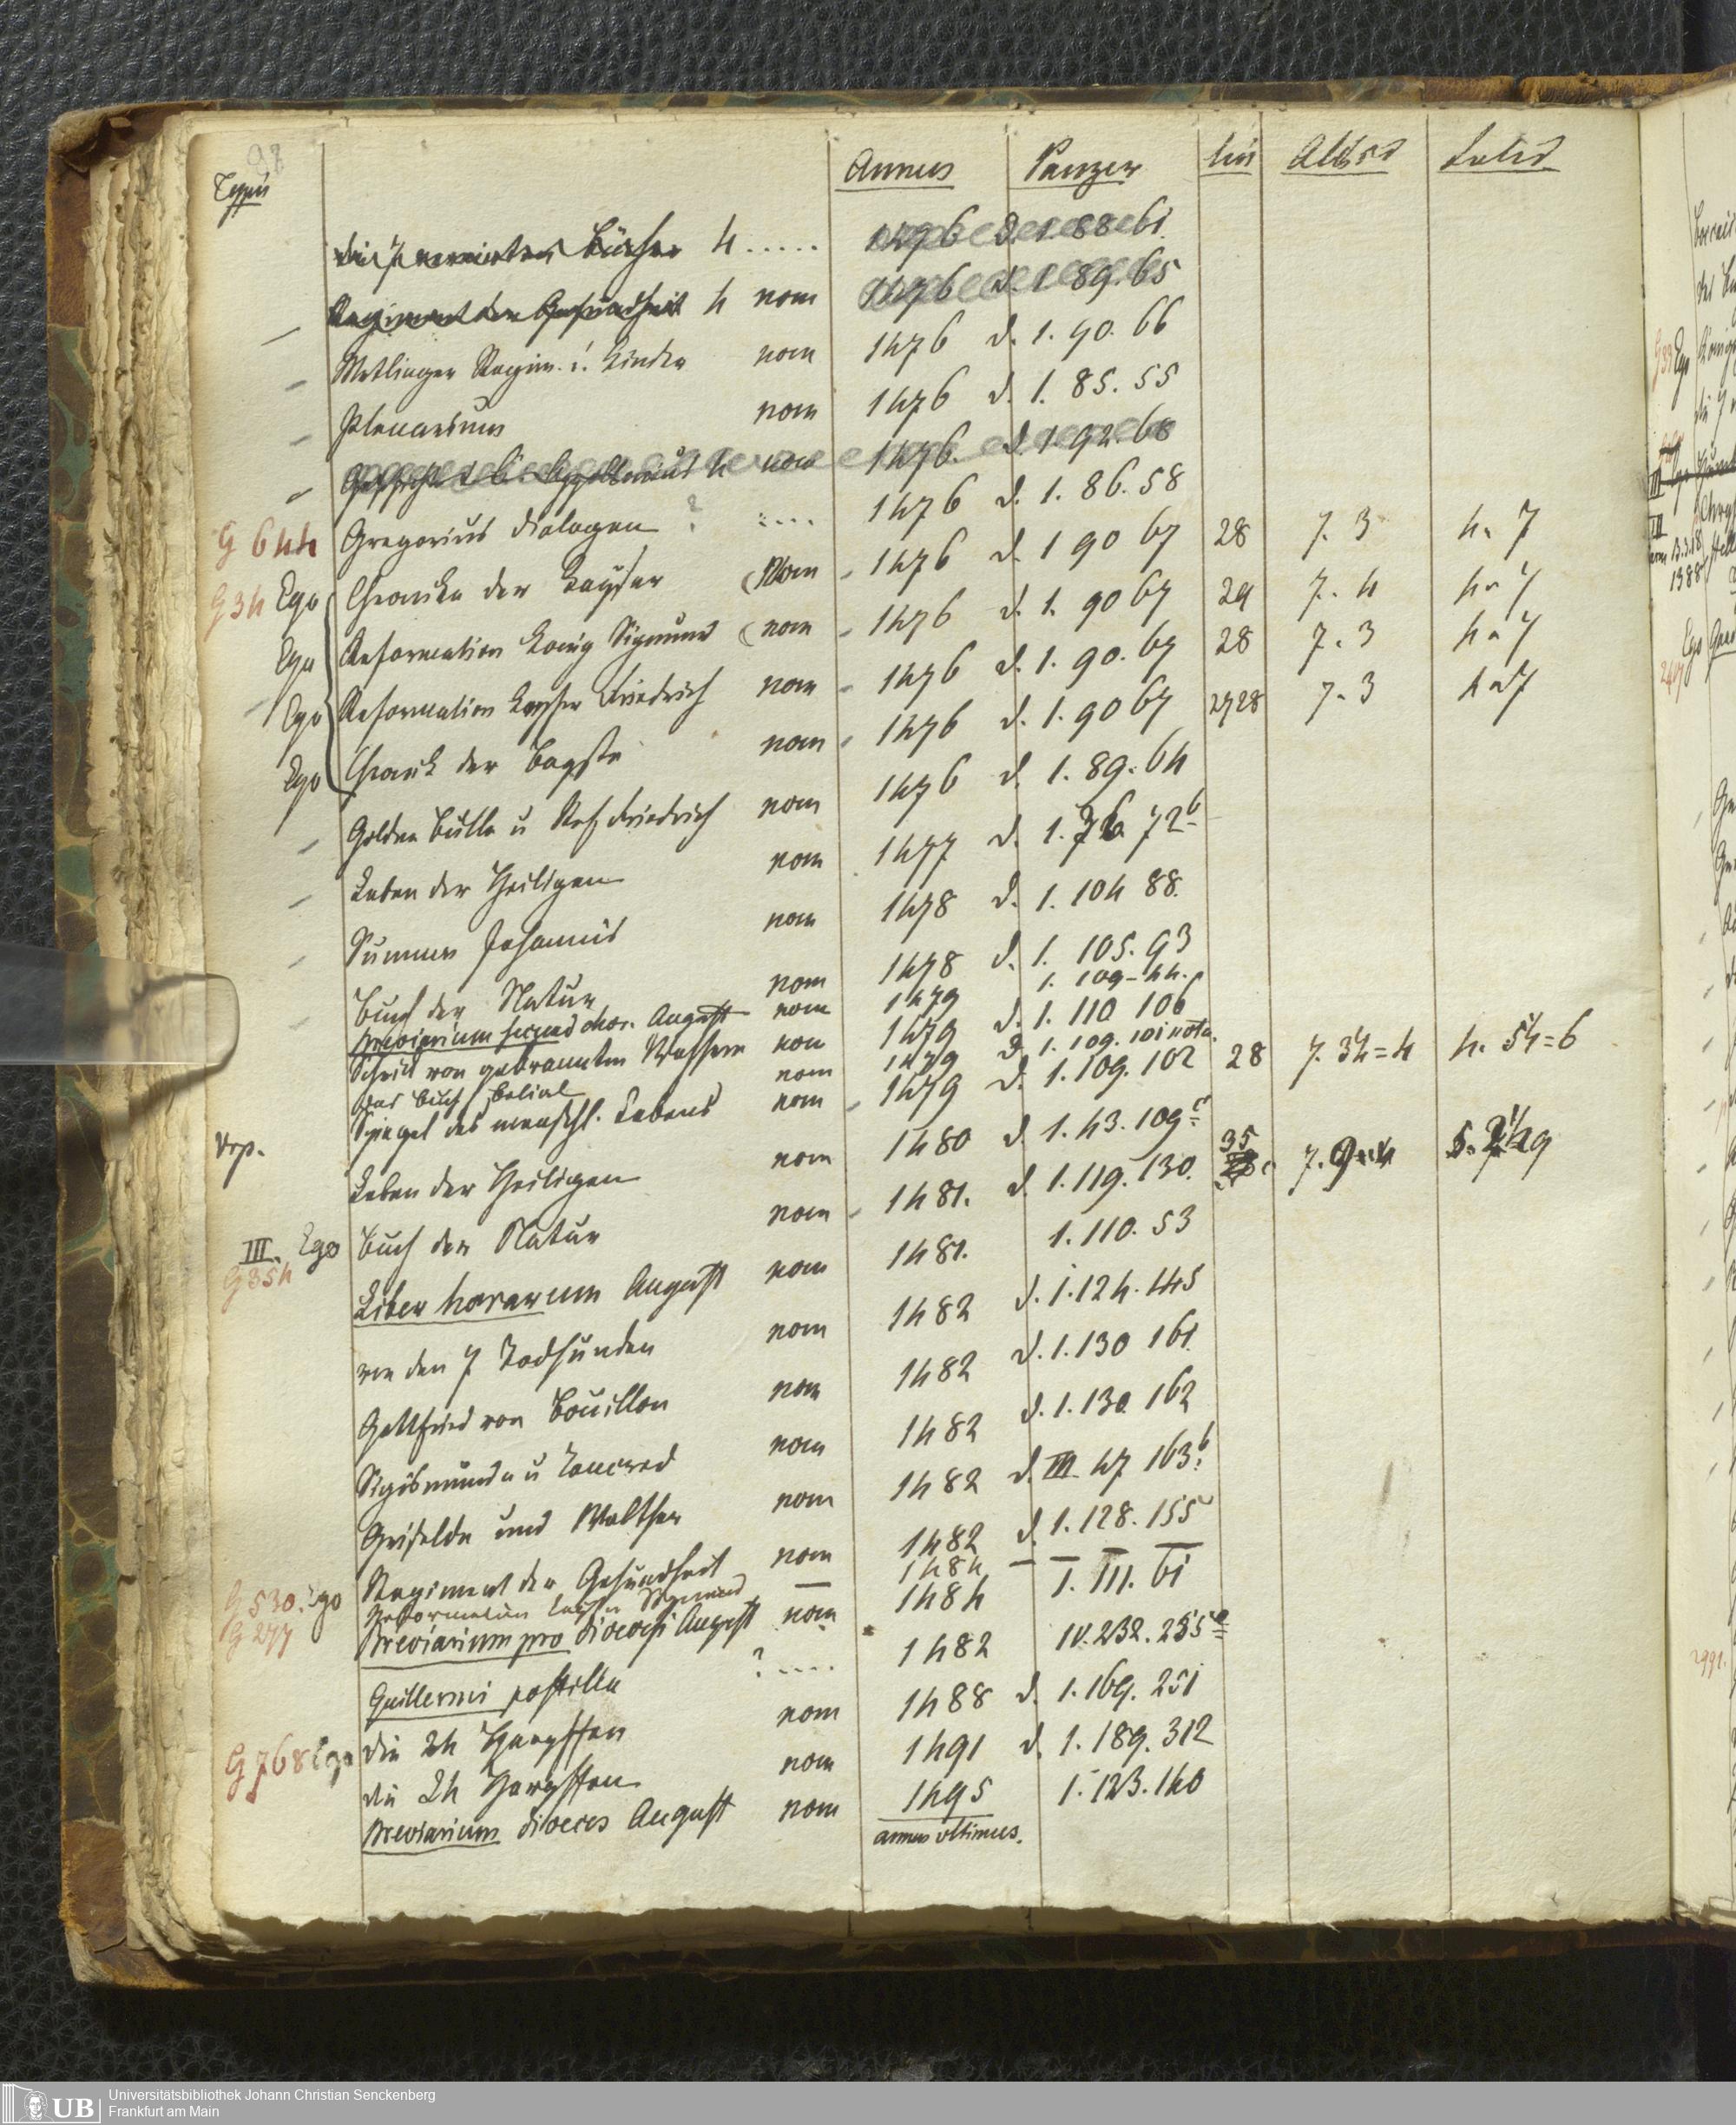 98
Typus Annus Panzer lin Altit Latit
h ..... 1476 d. 1. 88 61.
Regiment der Gesundheit h nom 1476 d. 1 89. 65
Metlinger Regim. d. Kinder nom 1476 d. 1. 90. 66
Plenarium nom 1476 d. 1. 85. 55
Apollonius h nom 1476. d. 1. 92. 68
G 644 Gregorius Dialogen ? .... 1476 d. 1. 86. 58
G 34 Ego Chronika der Kayser nom 1476 d. 1 90 67 28 7. 3 4. 7
Ego Reformation König Sigmund nom 1476 d. 1. 90 67 29 7. 4 4 7
Ego Reformation Kayser Friedrich nom 1476 d. 1. 90. 67 28 7. 3 4 7
Ego Chronik der Bapste nom 1476 d. 1. 90 67 27 28 7. 3 4 7
Goldne Bulle u Ref. Friedrich nom 1476 d. 1. 89. 64
Leben der Heiligen nom 1477 d. 1. 76. 72b
Summa Johannis nom 1478 d. 1. 104 88.
Buch der Natur nom 1478 d. 1. 105. 93
Breviarium secund chor. August nom 1479 1. 109 - 44.
Schrick von gebrannten Wassern nom 1479 d. 1. 110 106
Das Buch Belial nom 1479 d. 1. 109. 101 nota.
Vrp. Spiegel des menschl. Lebens nom 1479 d. 1. 109. 102 28 7. 34=4 4. 54=6
Leben der Heiligen nom 1480 d. 1. 43. 109c
III. Ego G 354 Buch der Natur nom 1481. d. 1. 119. 130. 35
Liber horarum August nom 1481. 1. 110. 53
von den 7 Todsünden nom 1482 d. 1. 124. 145
Gottfried von Bouillon nom 1482 d. 1. 130 161
Sigismunda u Tancred nom 1482 d. 1. 130 162
Griselda und Walther nom 1482 d. III. 47 163b
Regiment der Gesundheit nom 1482 d. 1. 128. 155
G 530. Ego Reformation Kayser Sigmund — 1484 — — — —
G 277 Breviarium pro diocesi August nom 1484 I. 111. 61
Guillermi postilla ? .... 1482 IV. 232. 255
G 768 Ego Die 24 Harpffen nom 1488 d. 1. 169. 251
die 24 Harpffen nom 1491 d. 1. 189. 312
Breviarium dioeces August nom 1495 1. 123. 140
annus ultimus.
UB Universitätsbibliothek Johann Christian Senckenberg
Frankfurt am Main